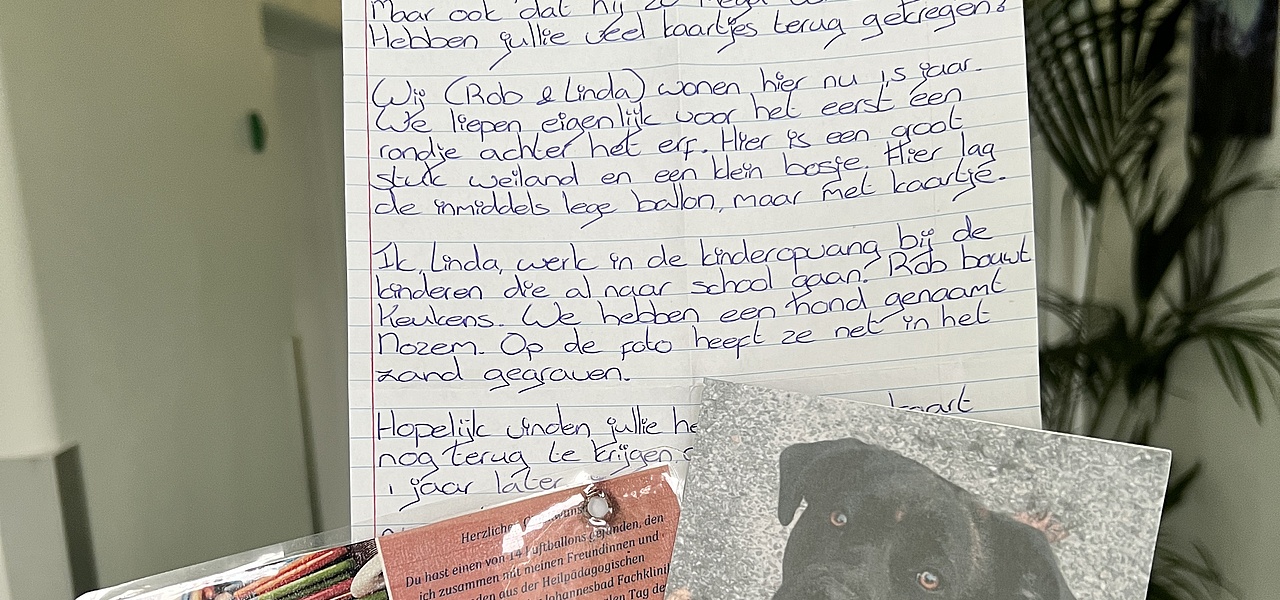 Maar ook dat hij zo
Hebben jullie veel kaartjes terug gekregen?
Wij (Rob & Linda) wonen hier nu 1,5 jaar.
We liepen eigenlijk voor het eerst een
rondje achter het erf. Hier is een groot
stuk weiland en een klein bosje. Hier lag
de inmiddels lege ballon, maar met kaartje.
Ik, Linda, werk in de kinderopvang bij de
kinderen die al naar school gaan. Rob bouwt
keukens. We hebben een hond genaamt
Nozem. Op de foto heeft ze net in het
zand gegraven.
Hopelijk vinden jullie kaart
nog terug te krijgen
1 jaar later
Du hast einen von 14 Luftballons gefunden, den
ich zusammen mit meinen Freundinnen und
aus der Heilpädagogischen
Johannesbad Fachklinik
Tag de